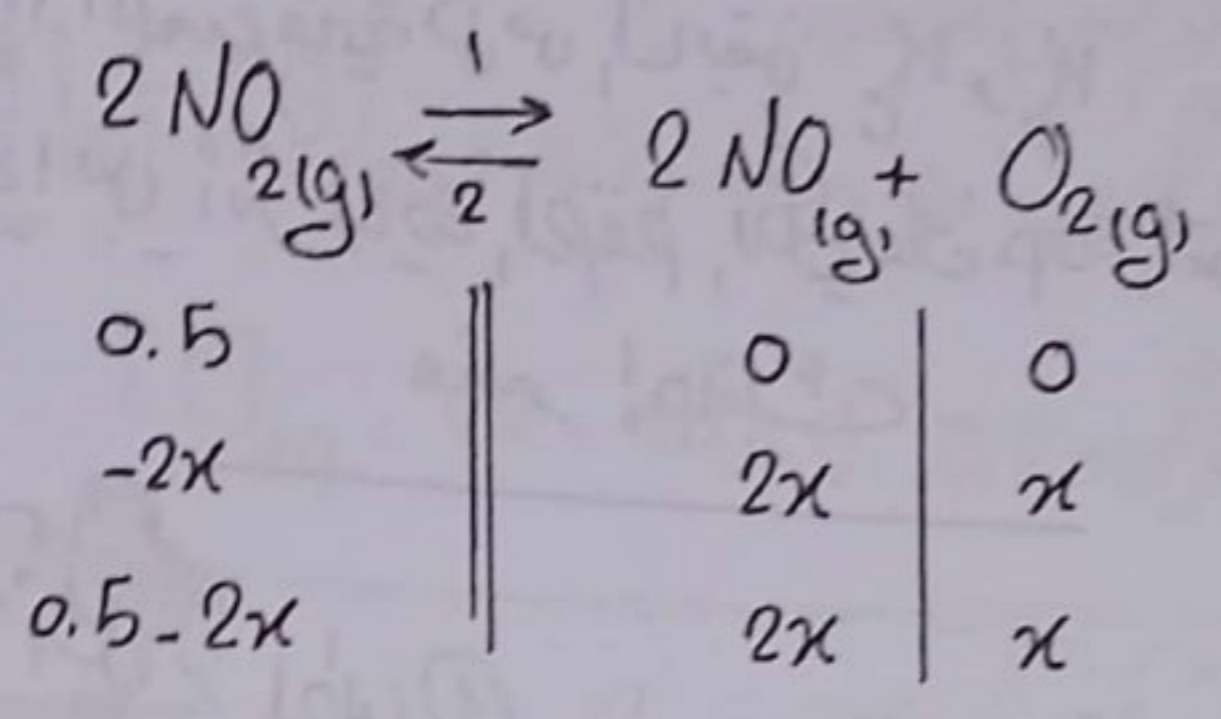 2NO₂(g) ⇌ 2NO(g) + O₂(g)
1
2
0.5 || 0 | 0
-2x || 2x | x
0.5-2x || 2x | x